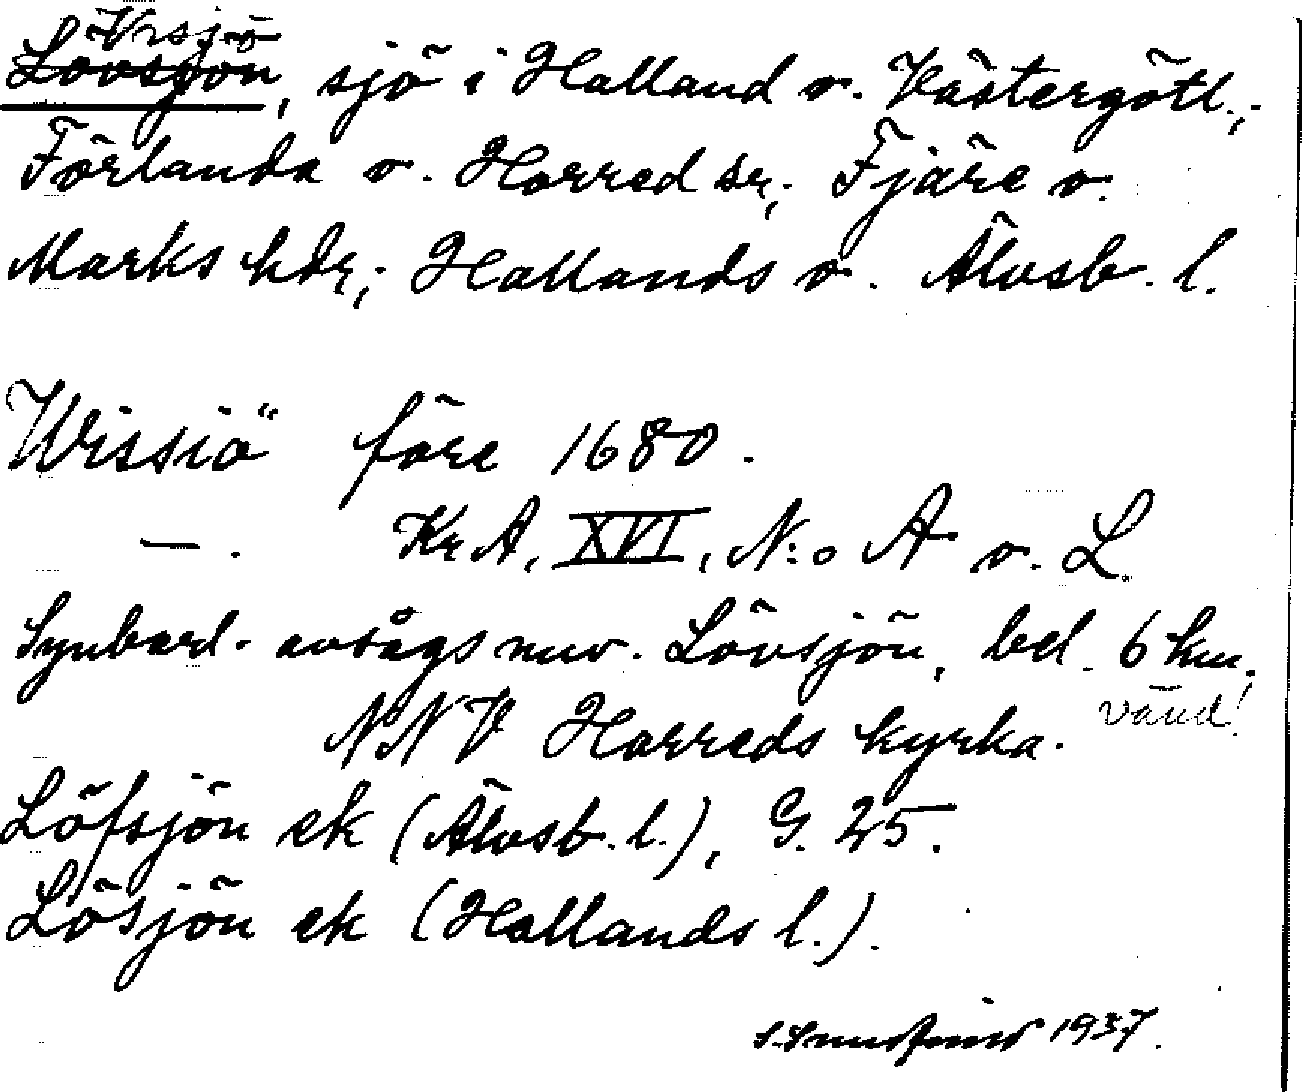 Vrsjö
Lövsjön, sjö i Halland o. Västergötl.;
Förlanda o. Horred sr; Fjäre o.
Marks hdr; Hallands o. Älvsb. l.
"Wissiö" före 1680.
—. KrA, XVI, N:o A o. L.
Synbarl. avsågs nuv. Lövsjön, bel. 6 km.
NNV Horreds kyrka. vänd!
Löfsjön ek (Älvsb. l.), G. 25.
Lösjön ek (Hallands l.).
1937.